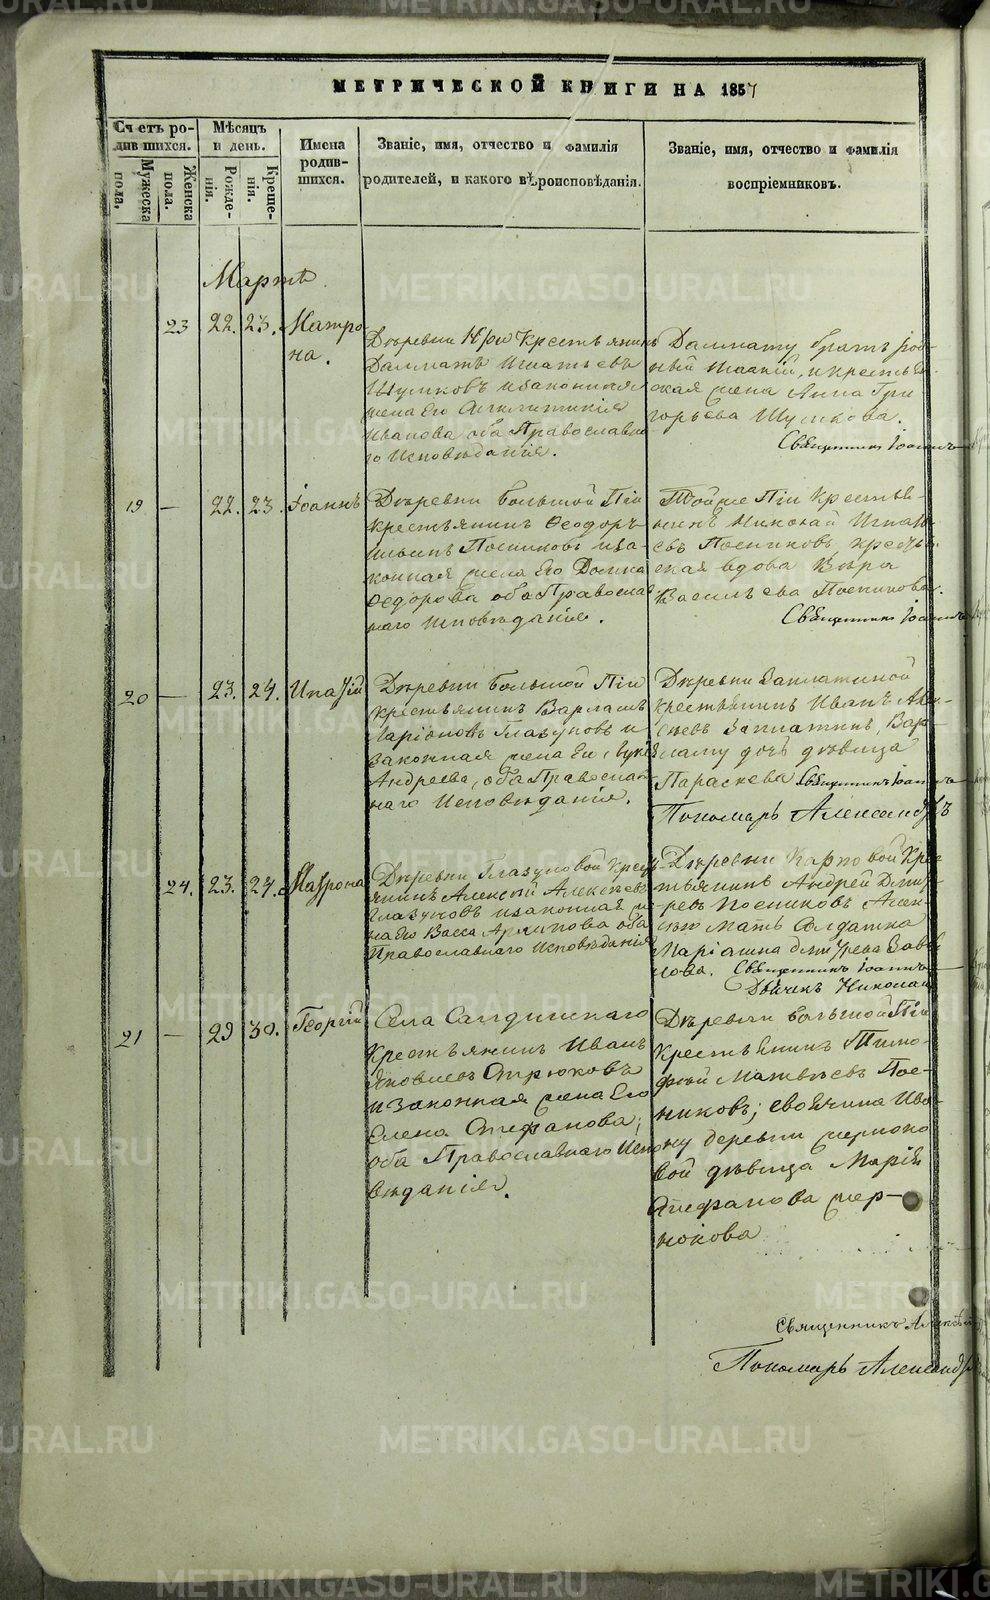 МЕТРИЧЕСКОЙ КНИГИ НА 1857
Счетъ ро-
дившихся.
Мужеска
пола.
Женска
пола.
Мѣсяцъ
и день.
Рожде-
нія.
Креще-
нія.
Имена
родив-
шихся.
Званіе, имя, отчество и фамилія
родителей, и какого вѣроисповѣданія.
Званіе, имя, отчество и фамилія
воспріемниковъ.
Мартъ.
23
22. 23.
Матро
на.
Деревни крестьянинъ
Далматъ Игнатьевъ
Шумковъ и законная
жена его
Иванова оба Православна
го Исповѣданія.
Далмату братъ род
ный и крестьян
ская жена Анна Гри
горьева Шумкова.
Священникъ Іоаннъ
19 —
22. 23.
Іоаннъ
Деревни Большой Піи
крестьянинъ Ѳеодоръ
Ильинъ Посниковъ и за
конная жена его Домна
Ѳедорова оба Православ
наго Исповѣданія.
Той же Піи Крестья-
нинъ Николай Игнать
евъ Посниковъ, крестьян
ская вдова Вѣра
Васильева Посникова.
Священникъ Іоаннъ
20 —
23. 24.
Ипатій
Деревни Большой Піи
крестьянинъ Варламъ
Ларіоновъ Глазуновъ и
законная жена его
Андреева, оба Православ
наго Исповѣданія.
Деревни Заплатиной
крестьянинъ Иванъ Алек
сѣевъ Заплатинъ, Вар-
ламу дочь дѣвица
Параскева Священникъ Іоаннъ
Пономарь Александръ
24.
23. 24.
Матрона
Деревни Глазуновой Крест
янинъ Алексѣй Алексѣевъ
Глазуновъ и законная же
на его Васса Архипова оба
Православнаго Исповѣданія
Деревни Карповой Крес
тьянинъ Андрей Дмит
ревъ Посниковъ Алек-
сѣю мать Солдатка
Маріамна Дмитрева
Священникъ Іоаннъ
Дьячекъ Николай
21 —
29 30.
Георгій
Села Салдинскаго
Крестьянинъ Иванъ
Яковлевъ Стрюковъ
и Законная жена Его
Елена Стефанова;
оба Православнаго Испо
вѣданія.
Деревни Большой Піи
Крестьянинъ Тимо-
фей Матвѣевъ Пос-
никовъ; своячина Ива-
ну деревни жерноко
вой дѣвица Марія
Стефанова жер-
нокова
Священникъ Алексѣй
Пономарь Александръ
METRIKI.GASO-URAL.RU